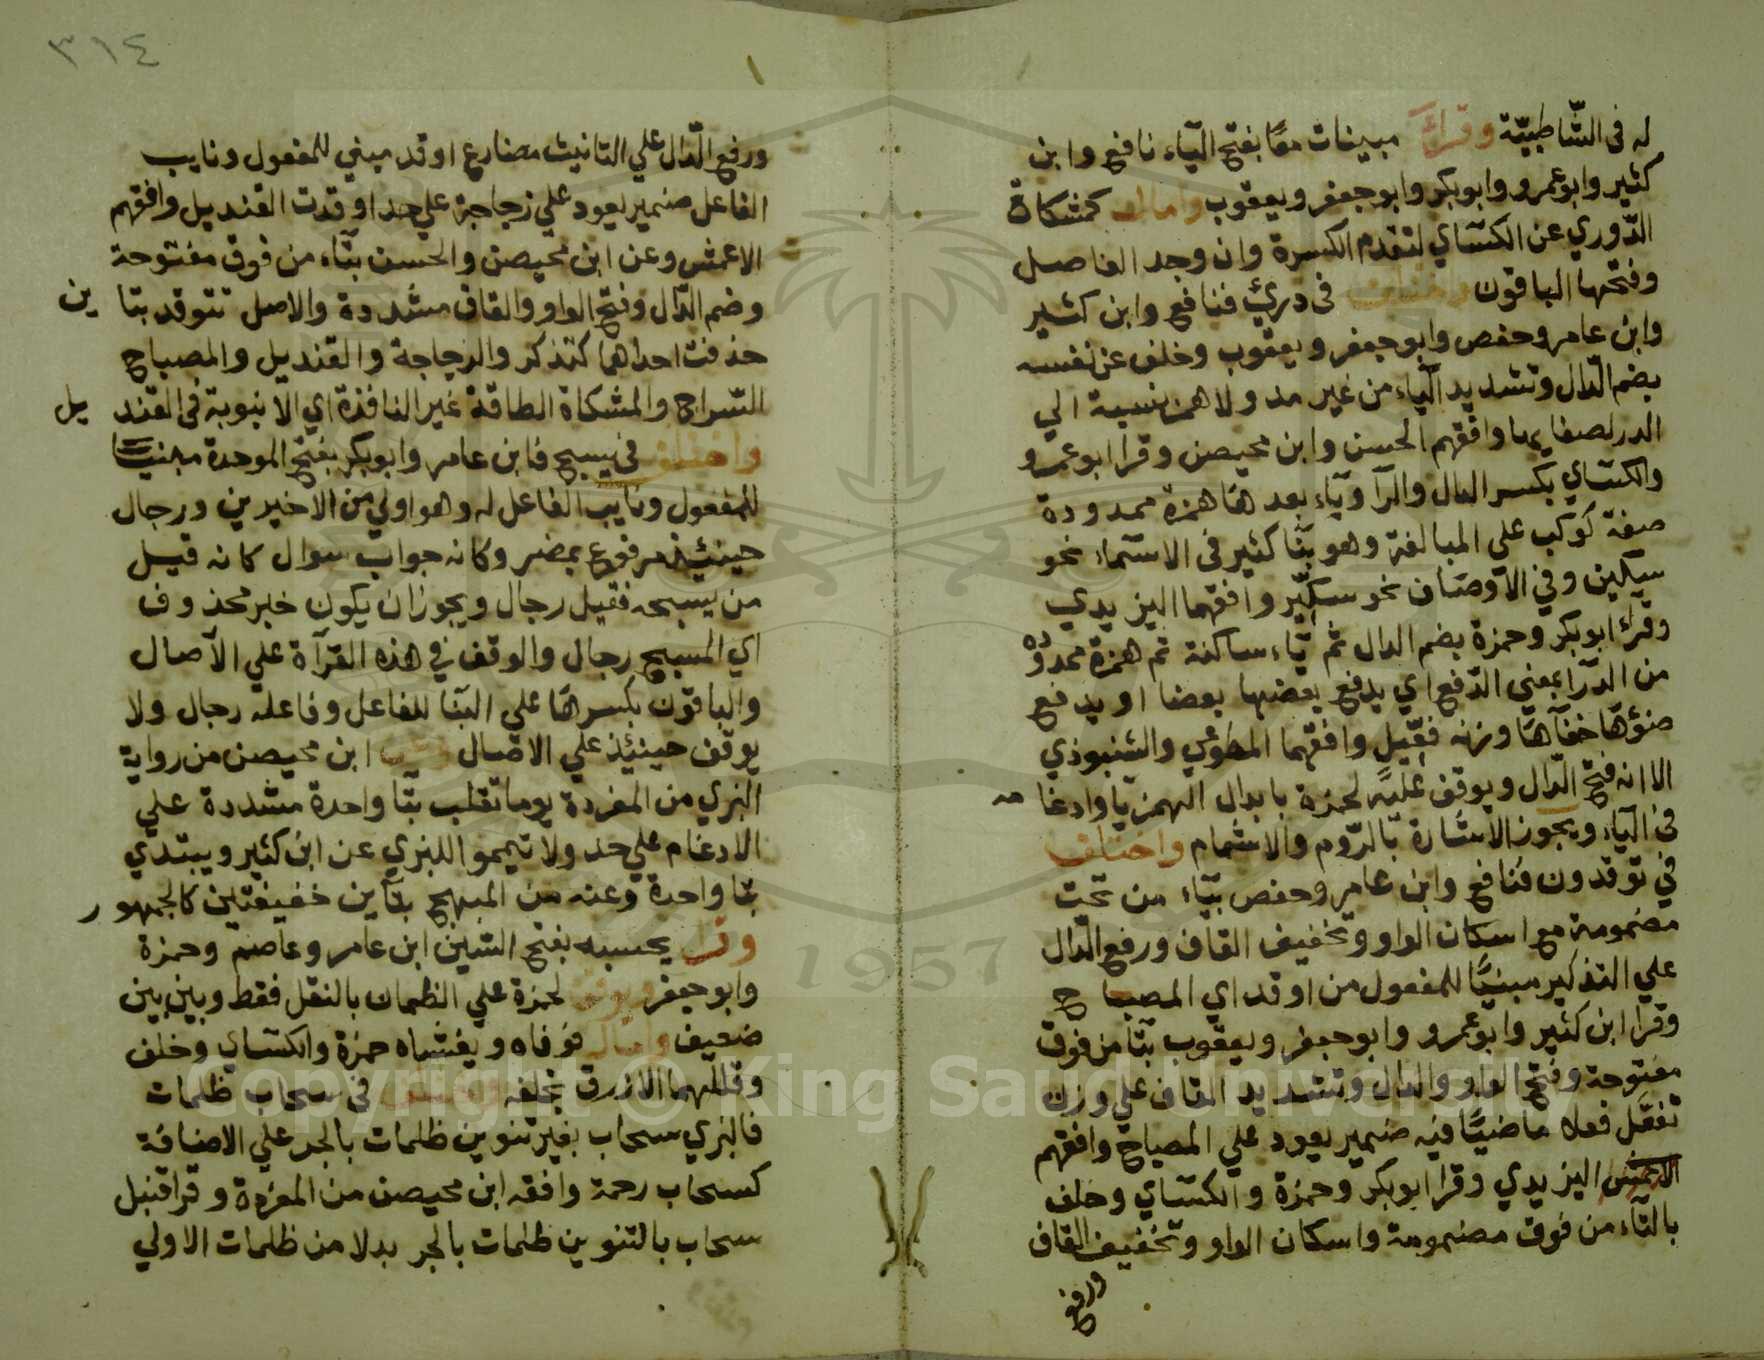 له في الشاطبيّة وقرأ مبينات معًا بفتح الياء نافع وابن
كثير وابو عمرو وابوبكر وابوجعفر ويعقوب وامال كمشكاة
الدّوري عن الكسّاي لتقدم الكسرة وان وجد الفاصل
وفتحها الباقون واختلف في دريّ فنافع وابن كثير
وابن عامر وحفص وابوجعفر ويعقوب وخلف عن نفسه
بضم الدّال وتشديد الياء من غير مد ولا همز نسبة الي
الدر لصفايها وافقهم الحسن وابن محيصن وقرا ابو عمرو
والكسّاي بكسر الدال والرآ وياء بعدها همزة ممدودة
صفة كوكب علي المبالغة وهو بنا كثير في الاسماء نحو
سكين وفي الاوصاف نحو سكّير وافقهما اليزيدي
وقرأ ابوبكر وحمزة بضم الدال ثم ياء ساكنة ثم همزة ممدوده
من الدّرأ بمعني الدّفع اي يدفع بعضها بعضا او يدفع
ضوؤها خفآها وزنه فعّيل وافقهما المطوعي والشنبوذي
الا انه فتح الدّال ويوقف عليه لحمزة بابدال الهمز يا وادغامه
في الياء ويجوز الاشارة بالرّوم والاشمام واختلف
في توقد ون فنافع وابن عامر وحفص بياء من تحت
مضمومة مع اسكان الواو وتخفيف القاف ورفع الدّال
علي التذكير مبنيًّا للمفعول من اوقد اي المصباح
وقرا ابن كثير وابو عمرو وابوجعفر ويعقوب بتا من فوق
مفتوحة وفتح الواو والدال وتشديد القاف علي وزن
تفعّل فعلا ماضيًا فيه ضمير يعود علي المصباح وافقهم
الاعمش اليزيدي وقرا ابوبكر وحمزة والكسّاي وخلف
بالتاء من فوق مضمومة واسكان الواو وتخفيف القاف
ورفع
٣١٤
ورفع الدّال علي التانيث مضارع اوقد مبني للمفعول ونايب
الفاعل ضمير يعود علي زجاجة علي حد اوقدت القنديل وافقهم
الاعمش وعن ابن محيصن والحسن بتاء من فوق مفتوحة
وضم الدّال وفتح الواو والقاف مشددة والاصل تتوقد بتاين
حذفت احداهما كتذكر والزجاجة والقنديل والمصباح
السّراج والمشكاة الطاقة غير النافذة اي الانبوبة في القنديل
واختلف في يسبح فابن عامر وابوبكر بفتح الموحدة مبنيّا
للمفعول ونايب الفاعل له وهو اولي من الاخيرين ورجال
حينئذ مرفوع بمضمر وكانه جواب سوال كانه قيل
من يسبحه فقيل رجال ويجوز ان يكون خبر محذوف
اي المسبح رجال والوقف في هذه القرآة علي الآصال
والباقون بكسرها علي البنا للفاعل وفاعله رجال ولا
يوقف حينئذ علي الاصال وعن ابن محيصن من رواية
البزي من المفردة يوما تقلب بتا واحدة مشددة علي
الادغام علي حد ولا تيمموا للبزي عن ابن كثير ويبتدي
بتا واحدة وعنه من المبهج بتآين خفيفتين كالجمهور
وقرا يحسبه بفتح السّين ابن عامر وعاصم وحمزة
وابوجعفر ويوقف لحمزة علي الظمان بالنقل فقط وبين بين
ضعيف وامال فوفاه ويغشاه حمزة والكسّاي وخلف
وقللهما الازرق بخلفه واختلف في سحاب ظلمات
فالبزي سحاب بغير تنوين ظلمات بالجر علي الاضافة
كسحاب رحمة وافقه ابن محيصن من المفردة وقرا قنبل
سحاب بالتنوين ظلمات بالجر بدلا من ظلمات الاولي
Copyright © King Saud University
1957